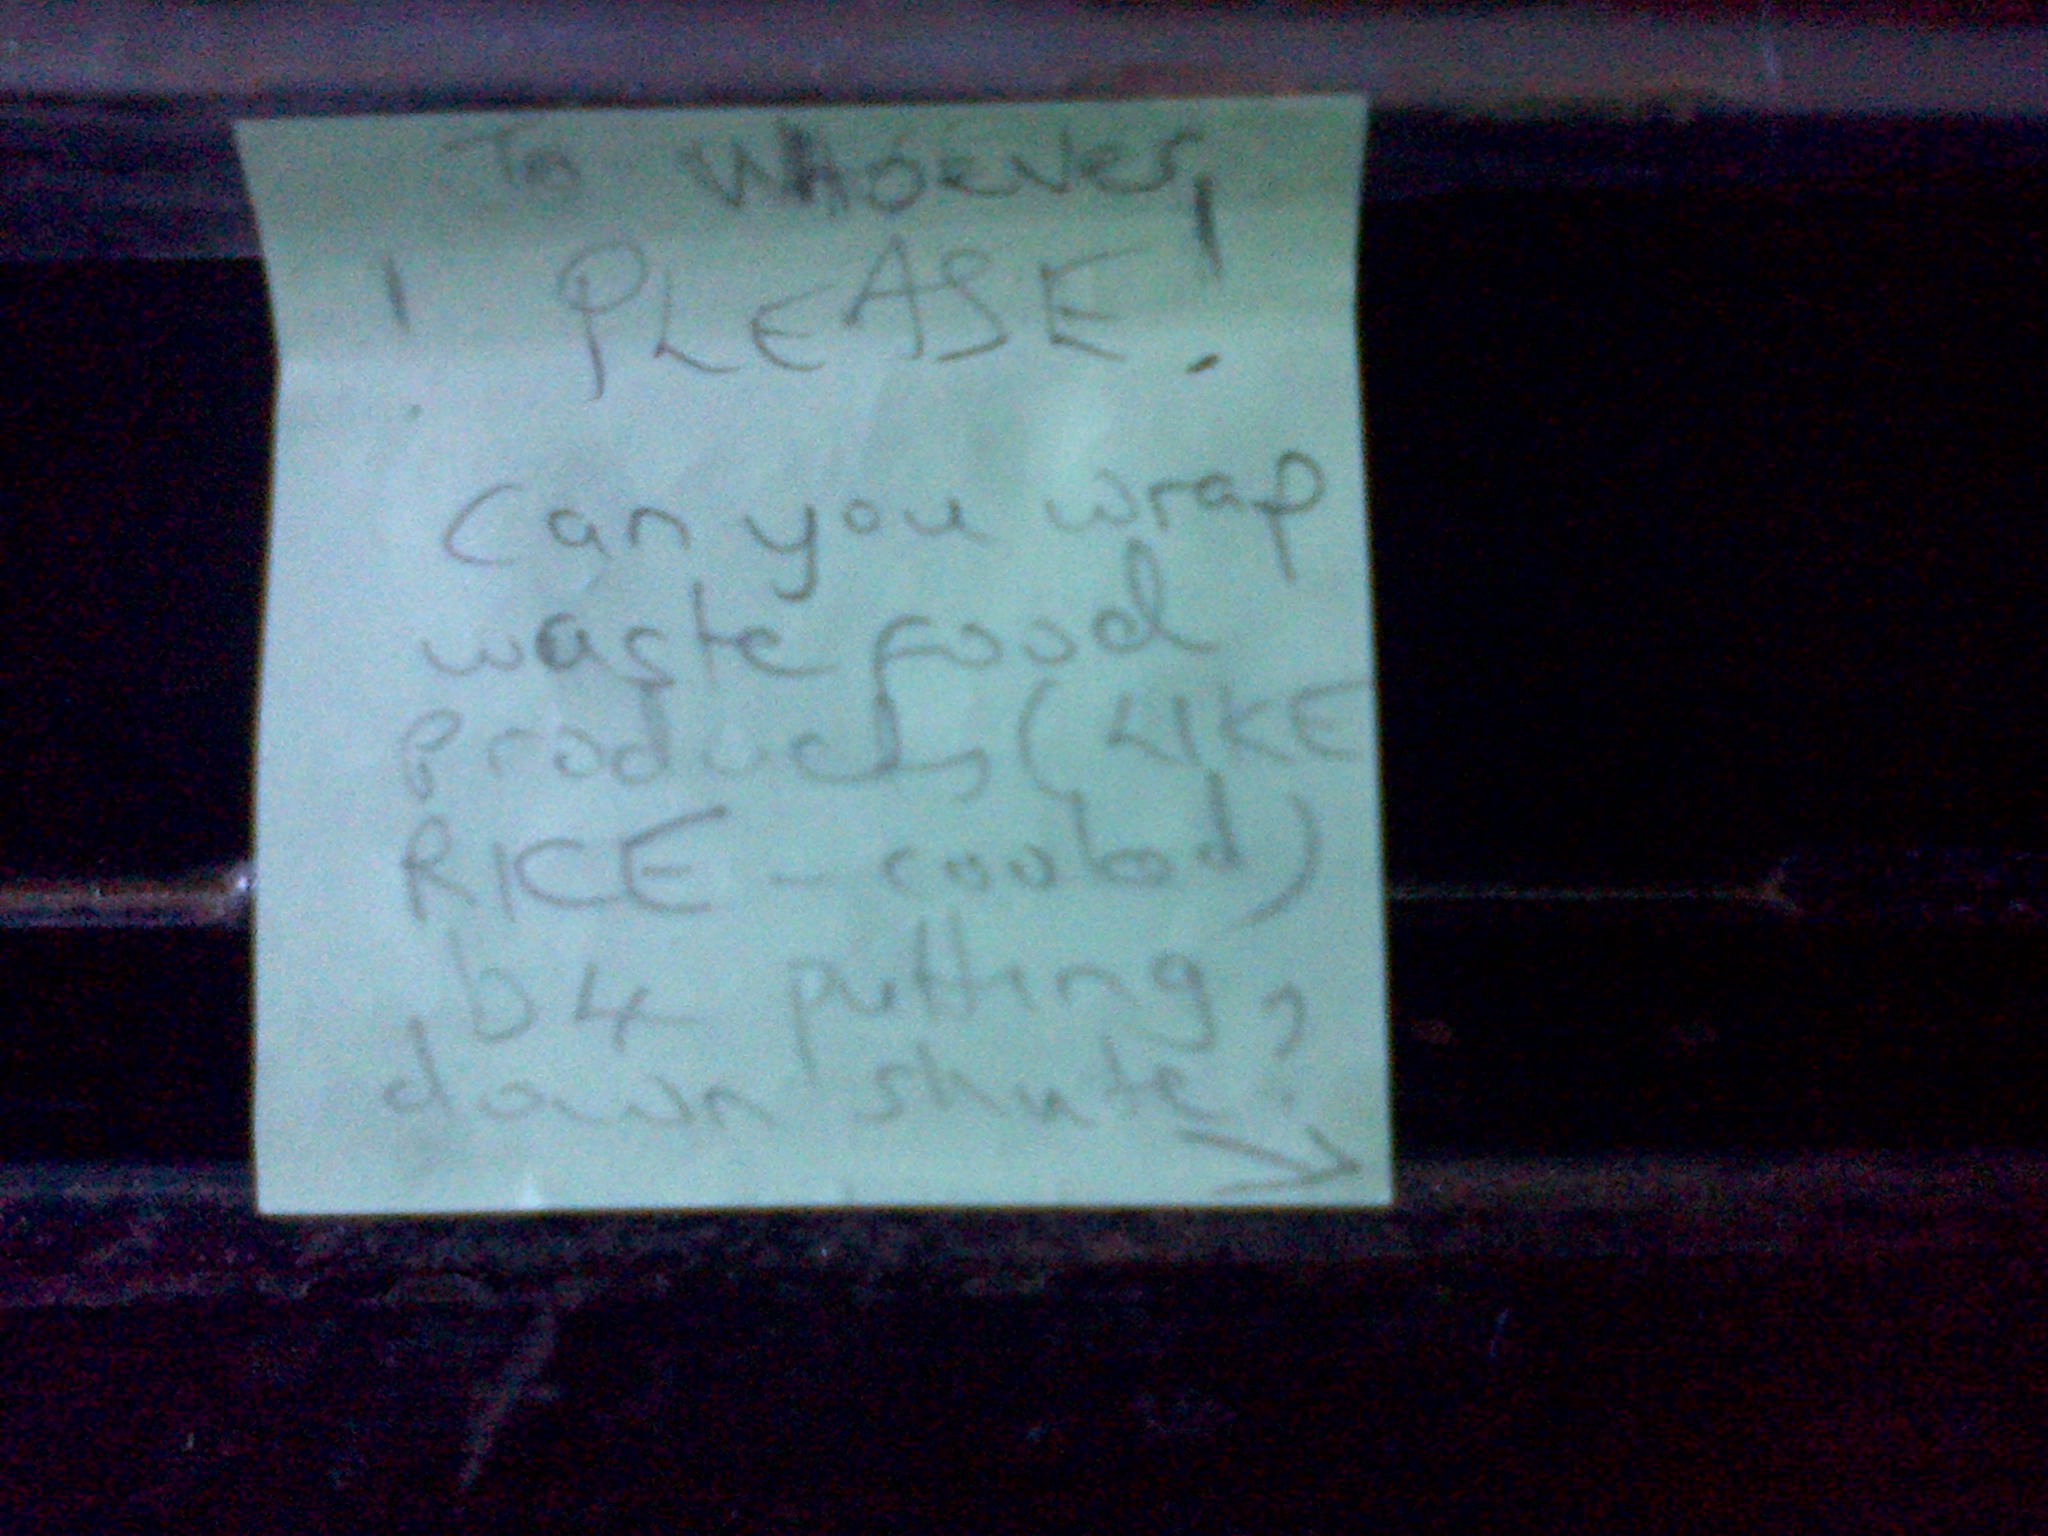 To Whoever,
! PLEASE!
Can you wrap
waste food
products (LIKE
RICE - cooked)
b4 putting
down shute?
→